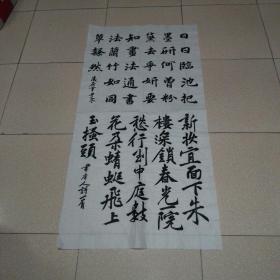 日日臨池把
墨研何曾粉
黛去爭妍要
知畫法通書
法蘭竹如同
草隸然
新妝宜面下朱
樓深鎖春光一院
愁行到中庭數
花朵蜻蜓飛上
玉搔頭
書唐人詩一首